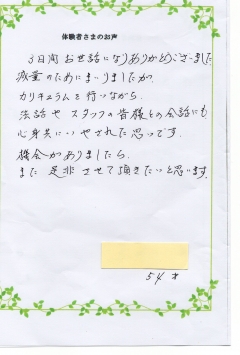 体験者さまのお声
3日間お世話になりありがとうございました
減量のためにまいりましたが
カリキュラムを行いながら、
法話やスタッフの皆様との会話にも
心身共にいやされた思いです。
機会がありましたら、
また是非させて頂きたいと思います。
54才